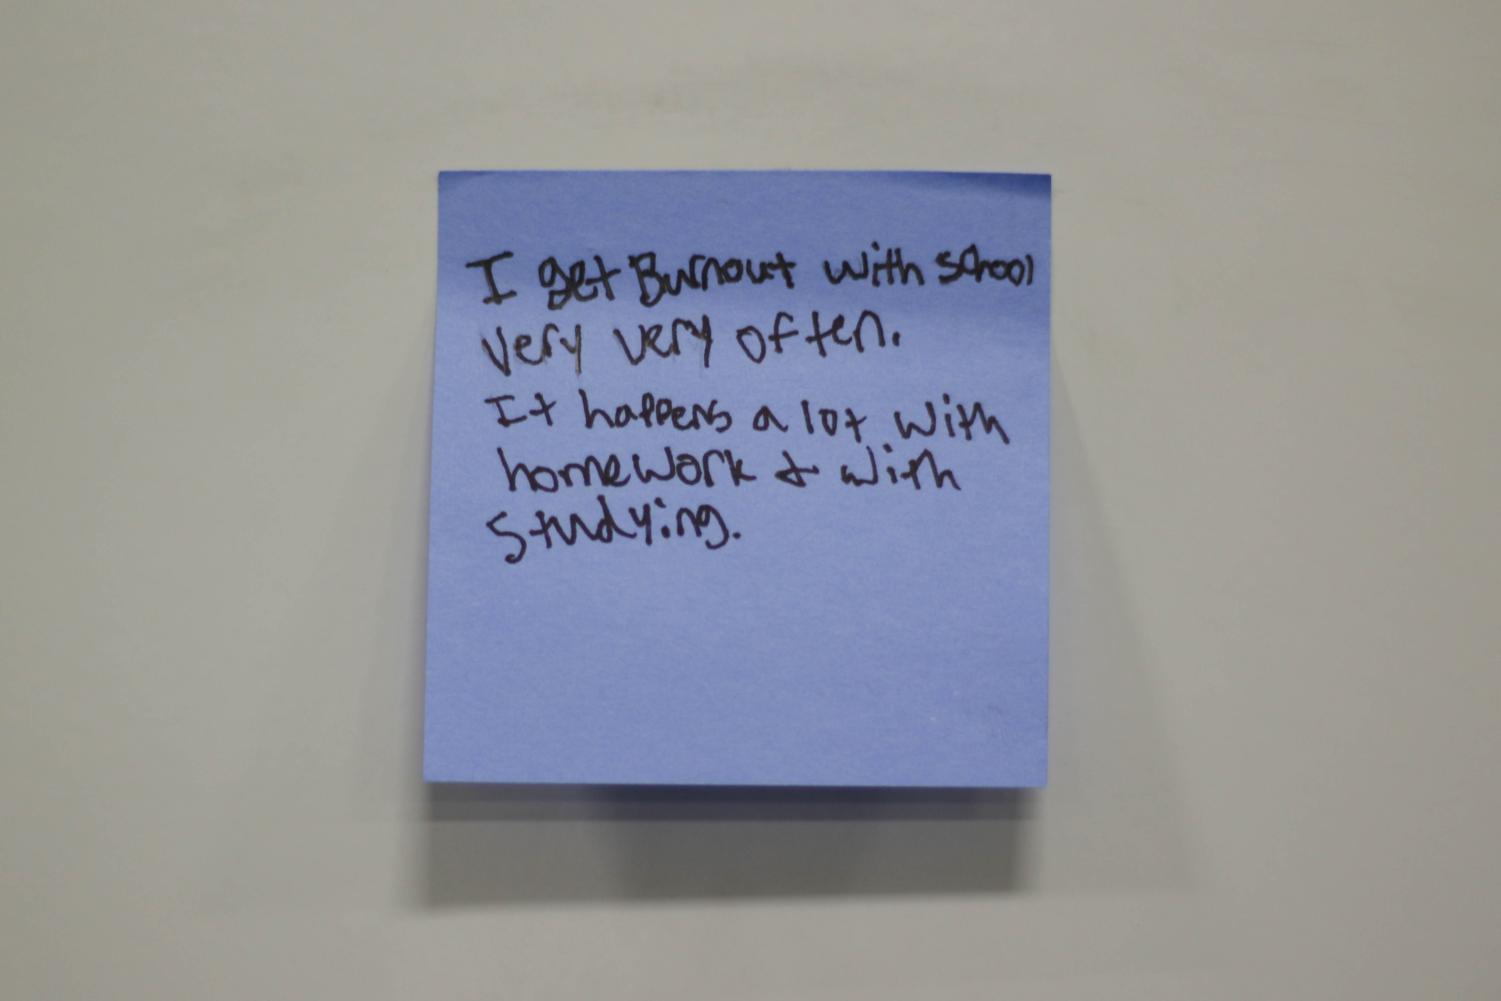 I get Burnout with school
very very often.
It happens a lot with
homework & with
studying.